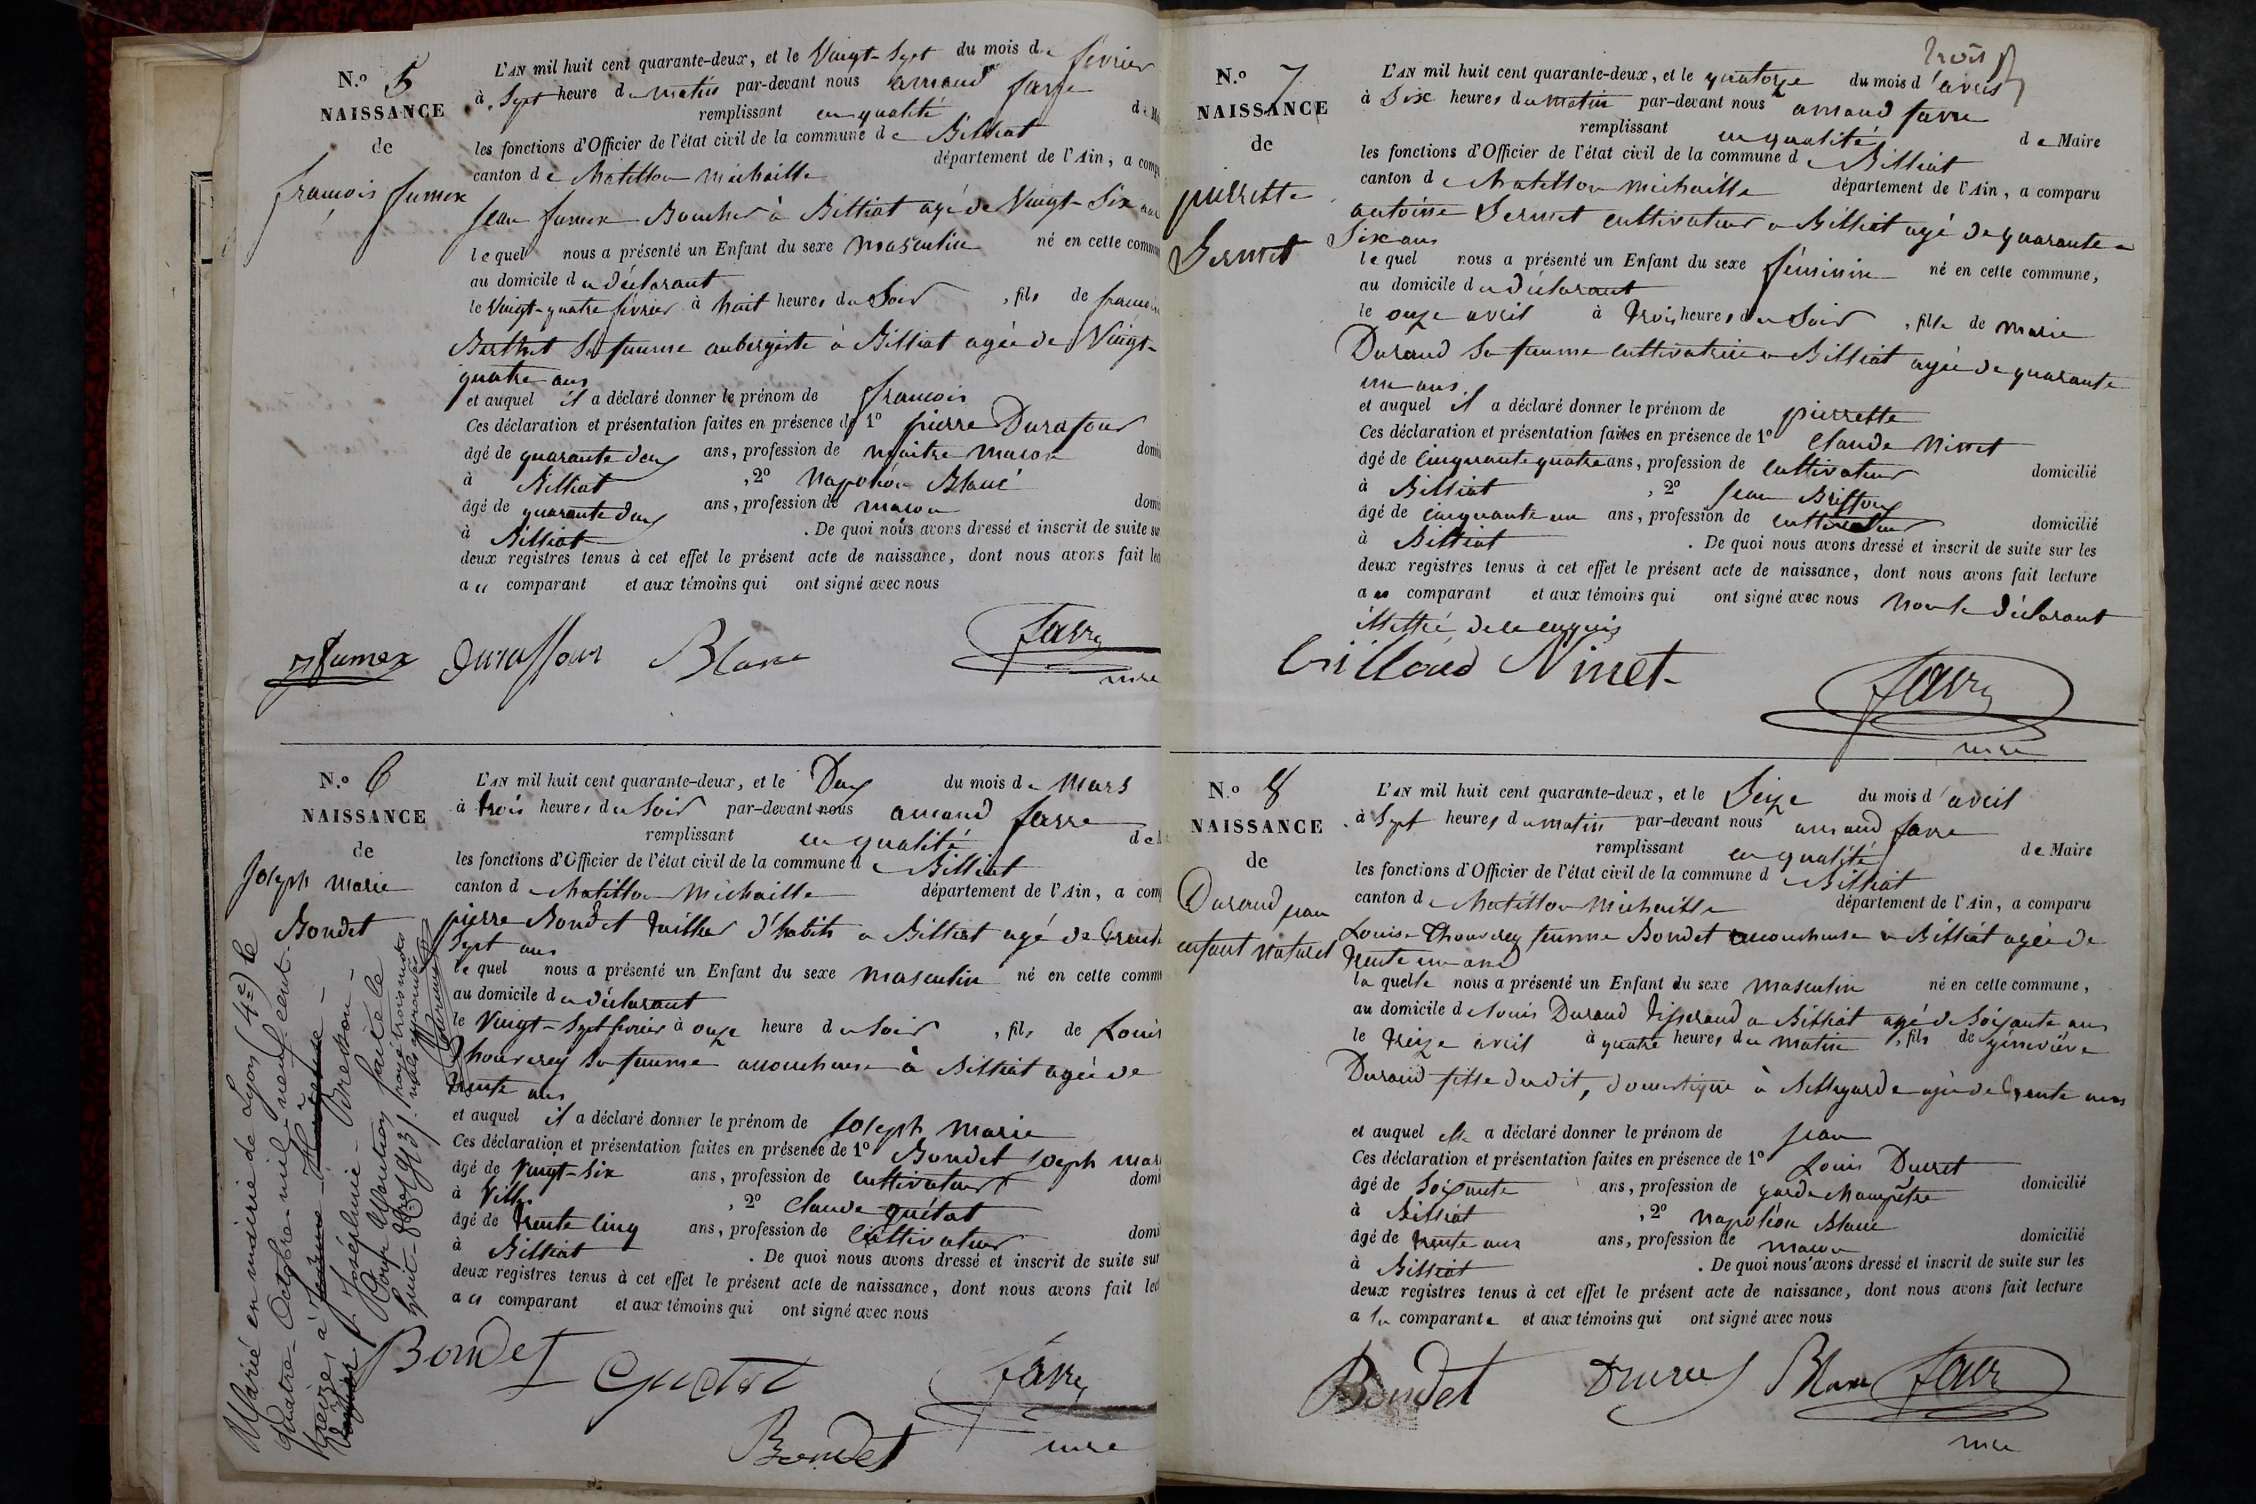 N.o 5
NAISSANCE
de
françois fumex
L'AN mil huit cent quarante-deux, et le Vingt-Sept du mois de février
à Sept heure du matin par-devant nous amand favre
remplissant en qualité de
les fonctions d'Officier de l'état civil de la commune de Billiat
canton de Chatillon michaille département de l'Ain, a
Jean fumex Boucher à Billiat agé de Vingt-Six
lequel nous a présenté un Enfant du sexe masculin né en cette
au domicile du déclarant
le Vingt-quatre février à huit heures du Soir, fils de
Berthet Sa femme aubergiste à Billiat agée de Vingt-
quatre ans
et auquel il a déclaré donner le prénom de françois
Ces déclaration et présentation faites en présence de 1o pierre Durafour
âgé de quarante deux ans, profession de maitre macon
à Billiat, 2o Napoléon Blanc
âgé de quarante deux ans, profession de macon
à Billiat. De quoi nous avons dressé et inscrit de suite
deux registres tenus à cet effet le présent acte de naissance, dont nous avons fait
au comparant et aux témoins qui ont signé avec nous
Jfumex Duraffour Blanc favre
mre
N.o 6
NAISSANCE
de
Joseph marie
Bondet
L'AN mil huit cent quarante-deux, et le Deux du mois de Mars
à trois heures du Soir par-devant nous amand favre
remplissant en qualité de
les fonctions d'Officier de l'état civil de la commune de Billiat
canton de Chatillon Michaille département de l'Ain, a
pierre Bondet tailleur d'habits a Billiat agé de trente
Sept ans
lequel nous a présenté un Enfant du sexe masculin né en cette
au domicile du déclarant
le Vingt-Sept février à onze heure du Soir, fils de
Thouverey Sa femme accoucheuse à Billiat agée de
trente ans
et auquel il a déclaré donner le prénom de Joseph marie
Ces déclaration et présentation faites en présence de 1o Bondet Joseph
âgé de Vingt-Six ans, profession de cultivateur
à Villes, 2o Claude guétat
âgé de trente cinq ans, profession de cultivateur
à Billiat. De quoi nous avons dressé et inscrit de suite sur
deux registres tenus à cet effet le présent acte de naissance, dont nous avons fait
au comparant et aux témoins qui ont signé avec nous
Bondet Guetat favre
Bondet mre
Marié en mairie de Lyon (4e) le
quatre Octobre mil neuf cent
treize, à Jeanne Thérèse
Joséphine Bredton
Pour Mention faite le
huit 8bre 1913
trois ƒ
N.o 7
NAISSANCE
de
pierrette
Sermet
L'AN mil huit cent quarante-deux, et le quatorze du mois d'avril
à Six heures du matin par-devant nous amand favre
remplissant en qualité de Maire
les fonctions d'Officier de l'état civil de la commune de Billiat
canton de Chatillon michaille département de l'Ain, a comparu
antoine Sermet cultivateur a Billiat agé de quarante
Six ans
lequel nous a présenté un Enfant du sexe féminin né en cette commune,
au domicile du déclarant
le onze avril à trois heures du Soir, fille de marie
Durand Sa femme cultivatrice a Billiat agée de quarante
un ans
et auquel il a déclaré donner le prénom de pierrette
Ces déclaration et présentation faites en présence de 1o Claude Ninet
âgé de cinquante quatre ans, profession de cultivateur domicilié
à Billiat, 2o Jean
âgé de cinquante un ans, profession de cultivateur domicilié
à Billiat. De quoi nous avons dressé et inscrit de suite sur les
deux registres tenus à cet effet le présent acte de naissance, dont nous avons fait lecture
au comparant et aux témoins qui ont signé avec nous non le déclarant
illettré de ce enquis
Ninet favre
mre
N.o 8
NAISSANCE
de
Durand jean
enfant naturel
L'AN mil huit cent quarante-deux, et le Seize du mois d'avril
à Sept heures du matin par-devant nous amand favre
remplissant en qualité de Maire
les fonctions d'Officier de l'état civil de la commune de Billiat
canton de Chatillon Michaille département de l'Ain, a comparu
Louise Thouverey femme Bondet accoucheuse a Billiat agée de
trente un ans
laquelle nous a présenté un Enfant du sexe masculin né en cette commune,
au domicile de Louis Durand tisserand a Billiat agé de Soixante ans
le treize avril à quatre heures du matin, fils de géneviève
Durand fille dudit, domestique à Bellegarde agée de trente ans
et auquel elle a déclaré donner le prénom de jean
Ces déclaration et présentation faites en présence de 1o Louis Ducret
âgé de Soixante ans, profession de garde champêtre domicilié
à Billiat, 2o Napoléon Blanc
âgé de trente ans ans, profession de macon domicilié
à Billiat. De quoi nous avons dressé et inscrit de suite sur les
deux registres tenus à cet effet le présent acte de naissance, dont nous avons fait lecture
a la comparante et aux témoins qui ont signé avec nous
Bondet Ducret Blanc favre
mre